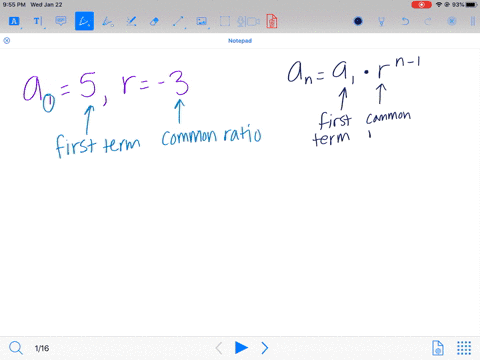 9:55 PM Wed Jan 22
93%
Notepad
a₁ = 5, r = -3
first term common ratio
aₙ = a₁ • r^(n-1)
first common
term
1/16